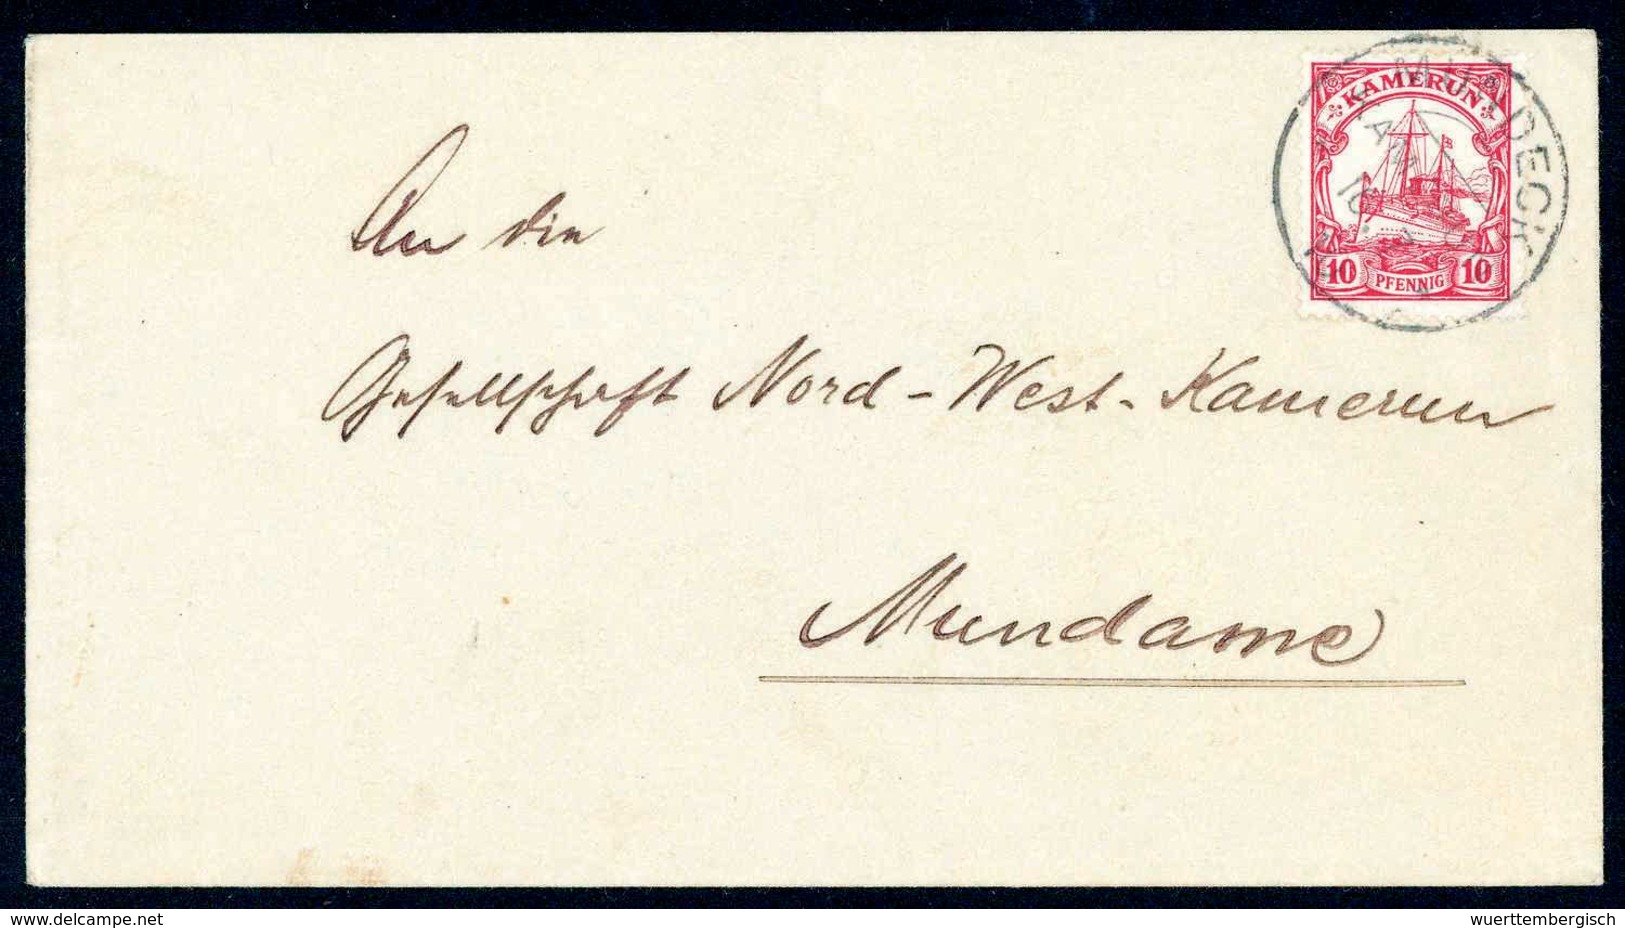 KAMERUN
10 PFENNIG 10
An die
Gesellschaft Nord-West-Kamerun
Mundame
www.delcampe.net
wuerttembergisch